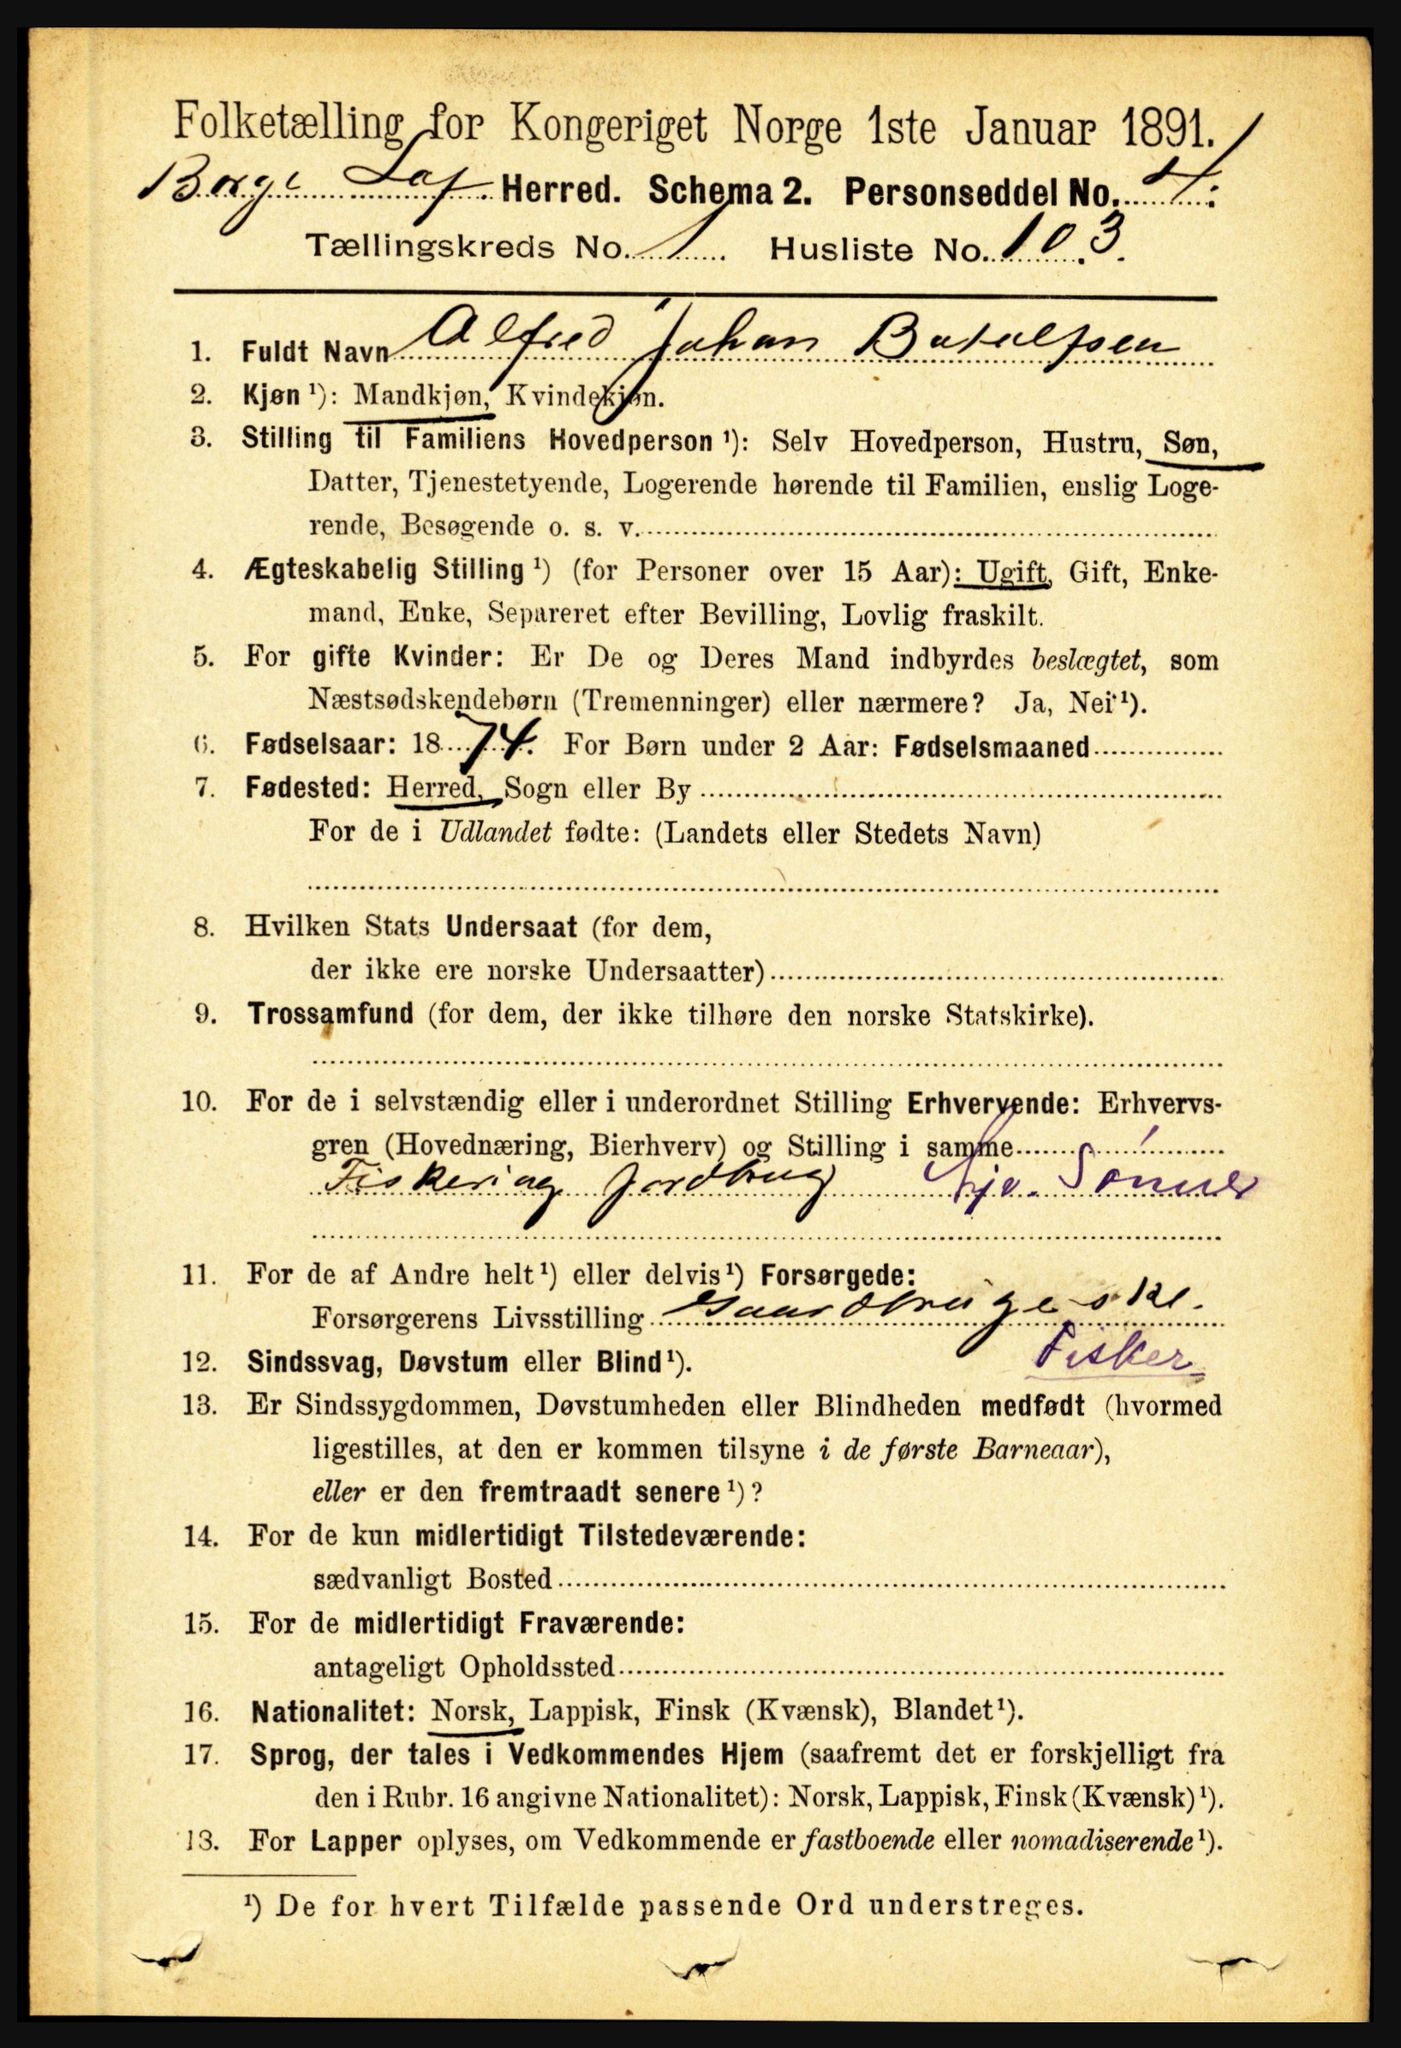 Folketælling for Kongeriget Norge 1ste Januar 1891.
Borge Lof. Herred. Schema 2. Personseddel No. 4.
Tællingskreds No. 1. Husliste No. 103.
1. Fuldt Navn Alfred Johan Botolfsen
2. Kjøn ¹): Mandkjøn, Kvindekjøn.
3. Stilling til Familiens Hovedperson ¹): Selv Hovedperson, Hustru, Søn,
Datter, Tjenestetyende, Logerende hørende til Familien, enslig Loge-
rende, Besøgende o. s. v.
4. Ægteskabelig Stilling ¹) (for Personer over 15 Aar): Ugift, Gift, Enke-
mand, Enke, Separeret efter Bevilling, Lovlig fraskilt.
5. For gifte Kvinder: Er De og Deres Mand indbyrdes beslægtet, som
Næstsødskendebørn (Tremenninger) eller nærmere? Ja, Nei ¹).
6. Fødselsaar: 1874. For Børn under 2 Aar: Fødselsmaaned
7. Fødested: Herred, Sogn eller By
For de i Udlandet fødte: (Landets eller Stedets Navn)
8. Hvilken Stats Undersaat (for dem,
der ikke ere norske Undersaatter)
9. Trossamfund (for dem, der ikke tilhøre den norske Statskirke).
10. For de i selvstændig eller i underordnet Stilling Erhvervende: Erhvervs-
gren (Hovednæring, Bierhverv) og Stilling i samme
Fiskeri og jordbrug
11. For de af Andre helt ¹) eller delvis ¹) Forsørgede:
Forsørgerens Livsstilling Gaardbruger
Fisker
12. Sindssvag, Døvstum eller Blind ¹).
13. Er Sindssygdommen, Døvstumheden eller Blindheden medfødt (hvormed
ligestilles, at den er kommen tilsyne i de første Barneaar),
eller er den fremtraadt senere ¹)?
14. For de kun midlertidigt Tilstedeværende:
sædvanligt Bosted
15. For de midlertidigt Fraværende:
antageligt Opholdssted
16. Nationalitet: Norsk, Lappisk, Finsk (Kvænsk), Blandet ¹).
17. Sprog, der tales i Vedkommendes Hjem (saafremt det er forskjelligt fra
den i Rubr. 16 angivne Nationalitet): Norsk, Lappisk, Finsk (Kvænsk) ¹).
18. For Lapper oplyses, om Vedkommende er fastboende eller nomadiserende ¹).
¹) De for hvert Tilfælde passende Ord understreges.